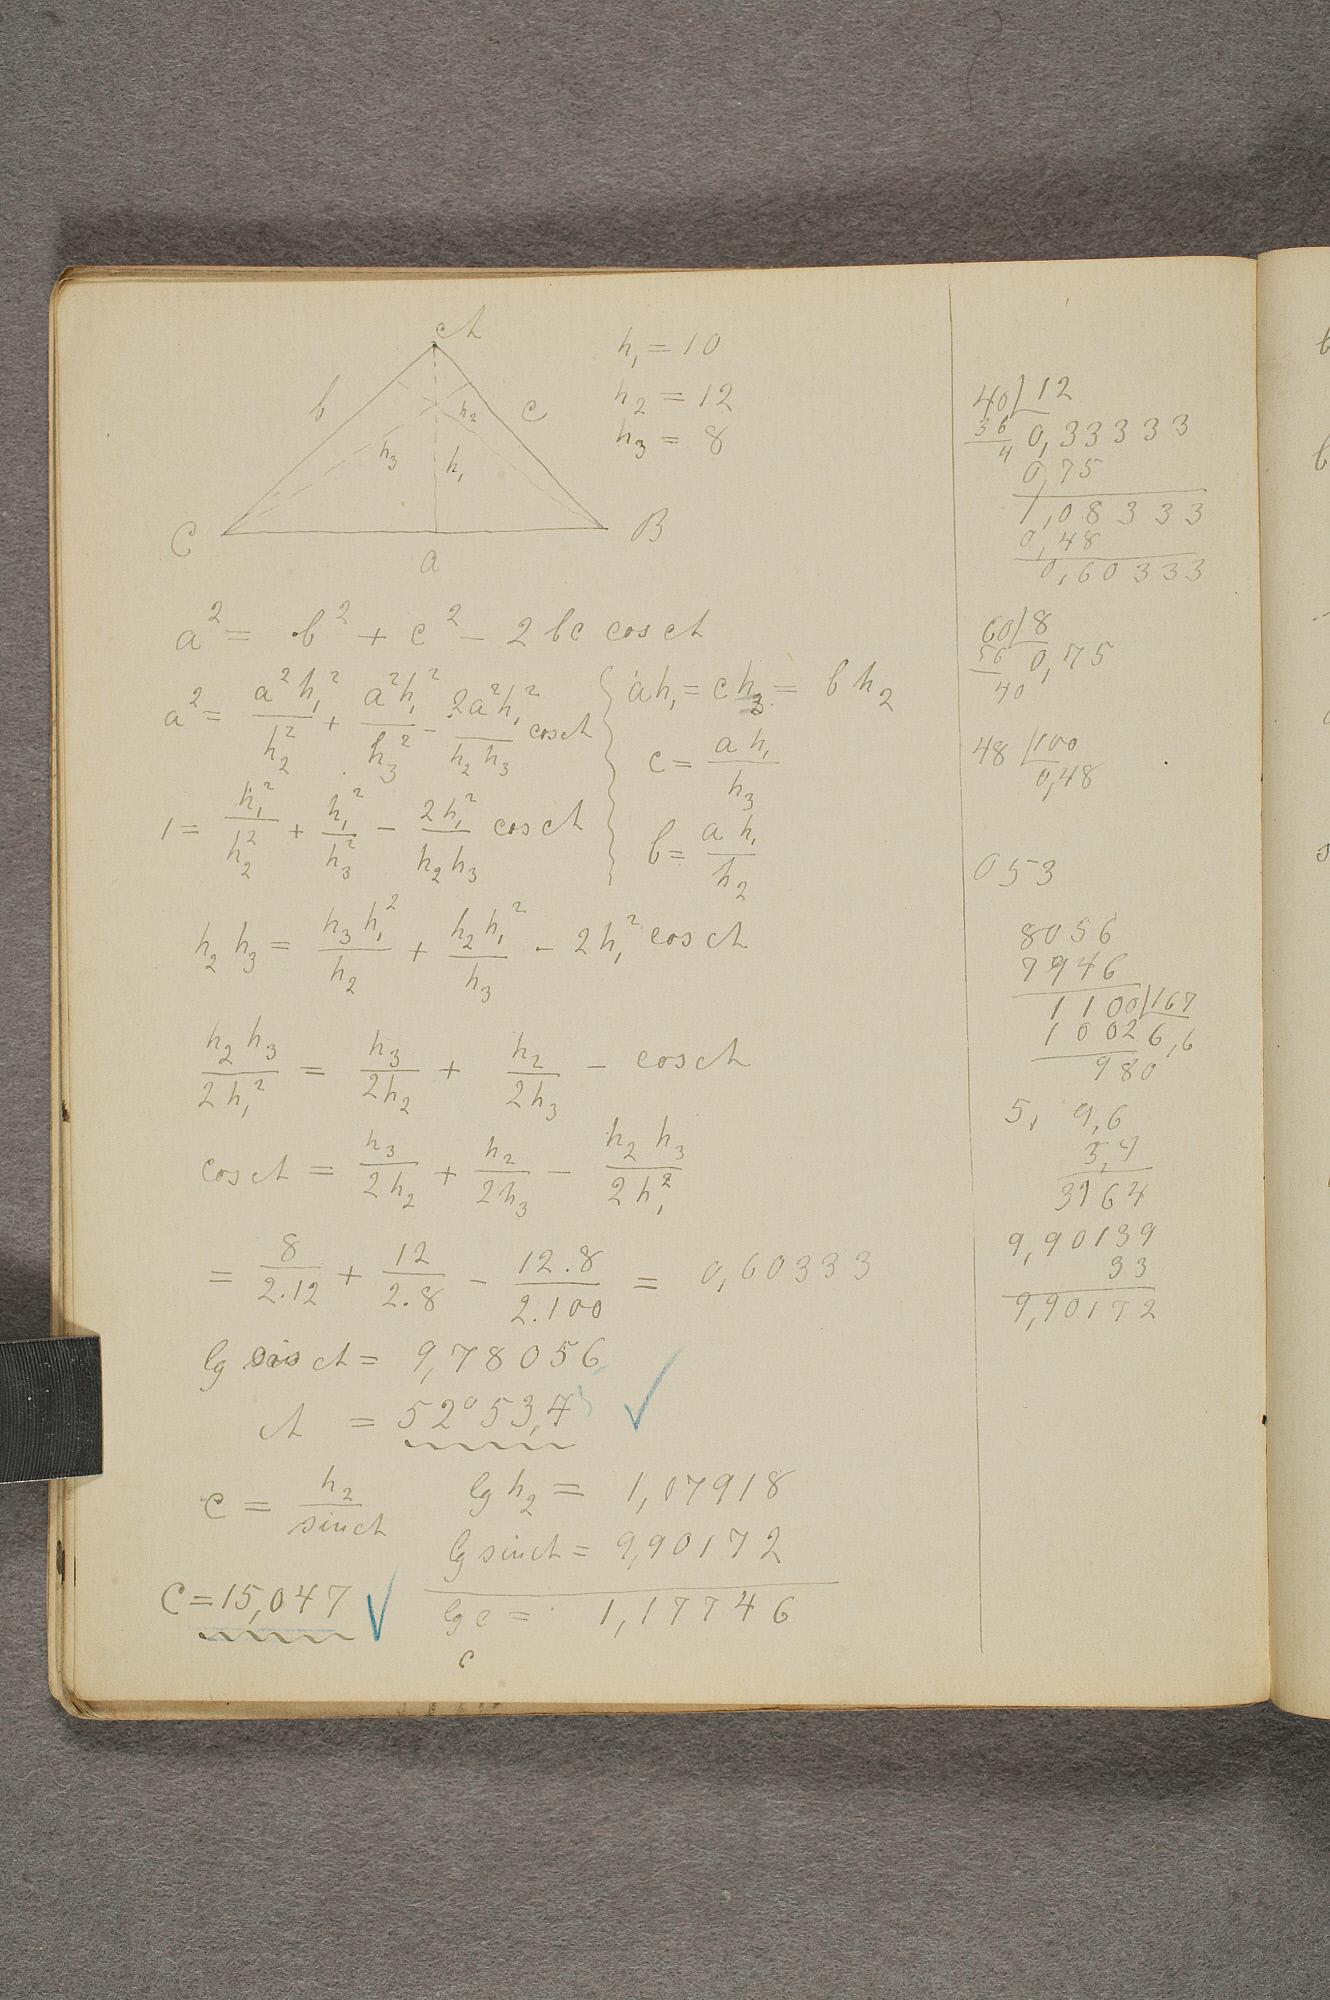 A
b c h₂
h₃ h₁
C B
a
h₁ = 10
h₂ = 12
h₃ = 8
a² = b² + c² - 2bc cos A
a² = a²h₁²/h₂² + a²h₁²/h₃² - 2a²h₁²/h₂h₃ cos A
ah₁ = ch₃ = bh₂
c = ah₁/h₃
1 = h₁²/h₂² + h₁²/h₃² - 2h₁²/h₂h₃ cos A
b = ah₁/h₂
h₂h₃ = h₃h₁²/h₂ + h₂h₁²/h₃ - 2h₁² cos A
h₂h₃/2h₁² = h₃/2h₂ + h₂/2h₃ - cos A
cos A = h₃/2h₂ + h₂/2h₃ - h₂h₃/2h₁²
= 8/2.12 + 12/2.8 - 12.8/2.100 = 0,60333
lg A = 9,78056
A = 52°53,4
c = h₂/sin A
lg h₂ = 1,07918
lg sin A = 9,90172
c = 15,047
lg c = 1,17746
c
40/12
36 0,33333
4
0,75
1,08333
0,48
0,60333
60/8
56 0,75
40
48/100
0,48
053
8056
7946
1100/167
1002 6,6
980
5, 9,6
3,4
3264
9,90139
33
9,90172